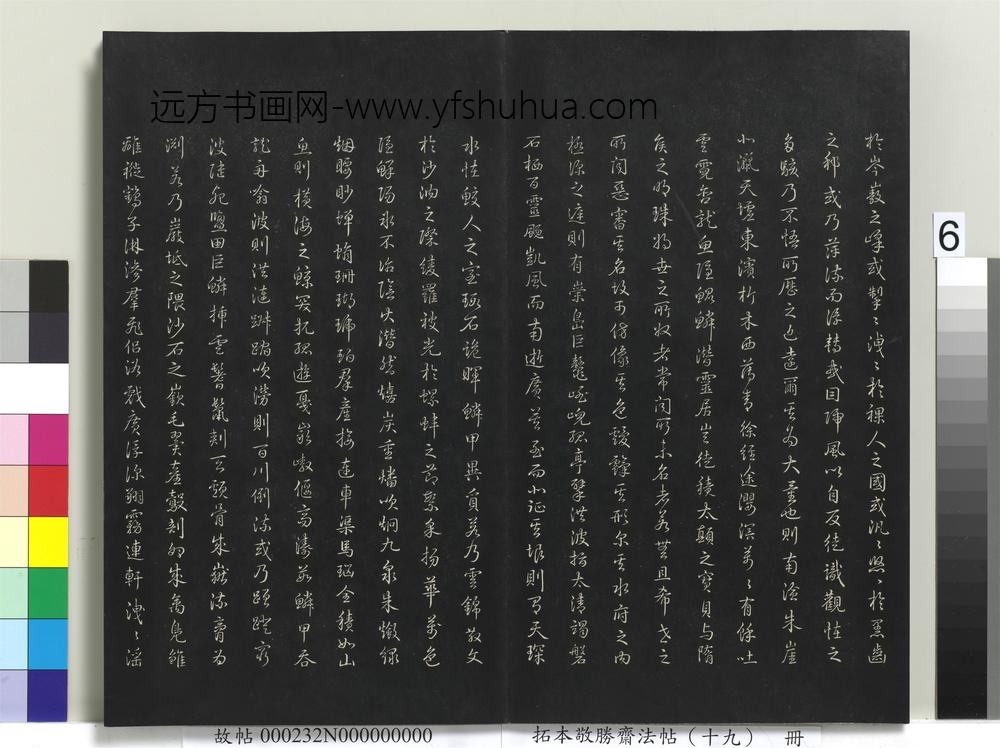 於岑嶔之峰或掣〻洩〻於裸人之國或汎〻悠〻於黑齒
之邦或乃萍流而浮轉或因歸風以自反徒識觀怪之
多駭乃不悟所歷之近遠爾其為大量也則南澰朱崖
北灑天墟東演析木西薄青徐經途瀴溟萬〻有餘吐
雲霓含龍魚隱鯤鱗潛靈居豈徒積太顛之寶貝與隋
侯之明珠將世之所收者常聞所未名者若無且希世之
所聞惡審其名故可仿像其色靉霼其形爾其水府之內
極深之庭則有崇島巨鼇峌峴孤亭擘洪波指太清竭磐
石棲百靈颺凱風而南逝廣莫至而北征其垠則有天琛
水怪鮫人之室瑕石詭暉鱗甲異質若乃雲錦散文
於沙汭之際綾羅被光於螺蚌之節繁采揚華萬色
隱鮮陽氷不冶陰火潛然熺炭重燔吹炯九泉朱燩綠
烟腰眇蟬蜎珊瑚琥珀羣產接連車渠馬瑙全積如山
魚則橫海之鯨突扤孤遊戛巖嶅偃高濤茹鱗甲吞
龍舟噏波則洪漣踧蹜吹澇則百川倒流或乃蹭蹬窮
波陸死鹽田巨鱗插雲鬐鬣刺天顱骨成嶽流膏為
淵若乃巖坻之隈沙石之嶔毛翼產鷇剖卵成禽鳧雛
離褷鶴子淋滲羣飛侶浴戲廣浮深翔霧連軒洩〻淫
远方书画网-www.yfshuhua.com
6
故帖 000232N000000000
拓本敬勝齋法帖（十九） 冊